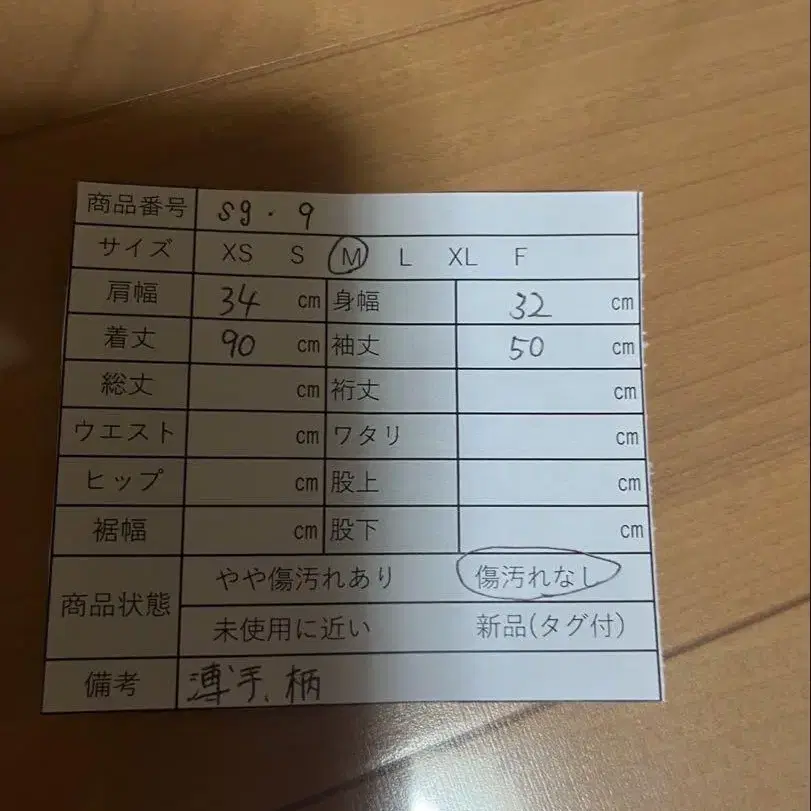 商品番号 sg・9
サイズ XS S M L XL F
肩幅 34 cm 身幅 32 cm
着丈 90 cm 袖丈 50 cm
総丈 cm 裄丈 cm
ウエスト cm ワタリ cm
ヒップ cm 股上 cm
裾幅 cm 股下 cm
商品状態 やや傷汚れあり 傷汚れなし
未使用に近い 新品(タグ付)
備考 薄手、柄